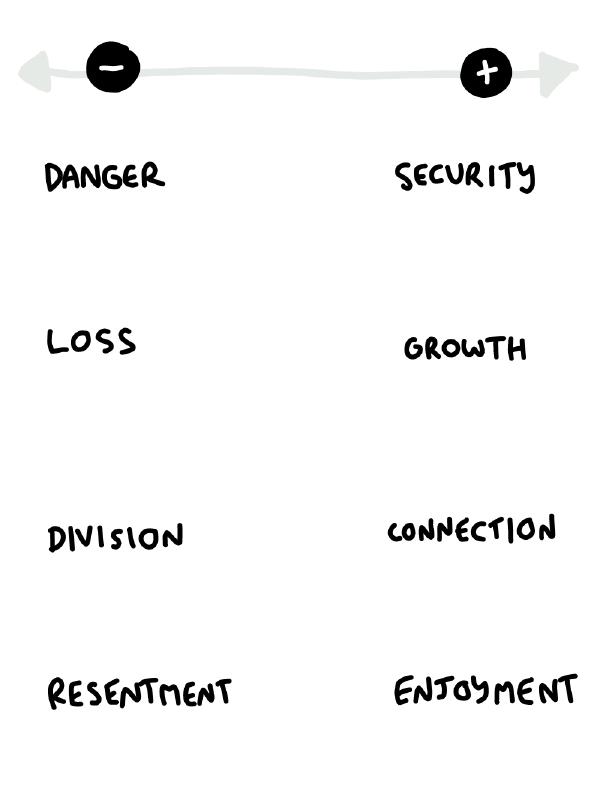 − +
DANGER SECURITY
LOSS GROWTH
DIVISION CONNECTION
RESENTMENT ENJOYMENT